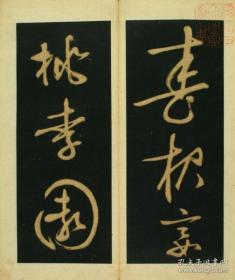 春夜宴
桃李園
孔夫子旧书网